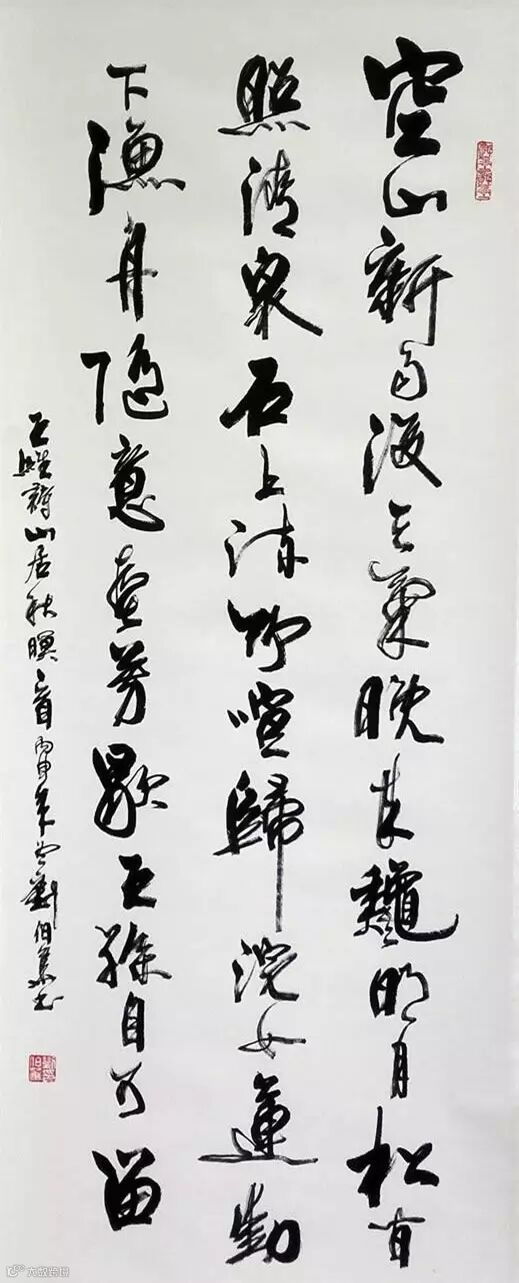 空山新雨後天氣晚来龝明月松间
照清泉石上流竹喧歸浣女蓮動
下漁舟隨意春芳歇王孫自可留
王維詩山居秋暝一首丙申年劉伯书